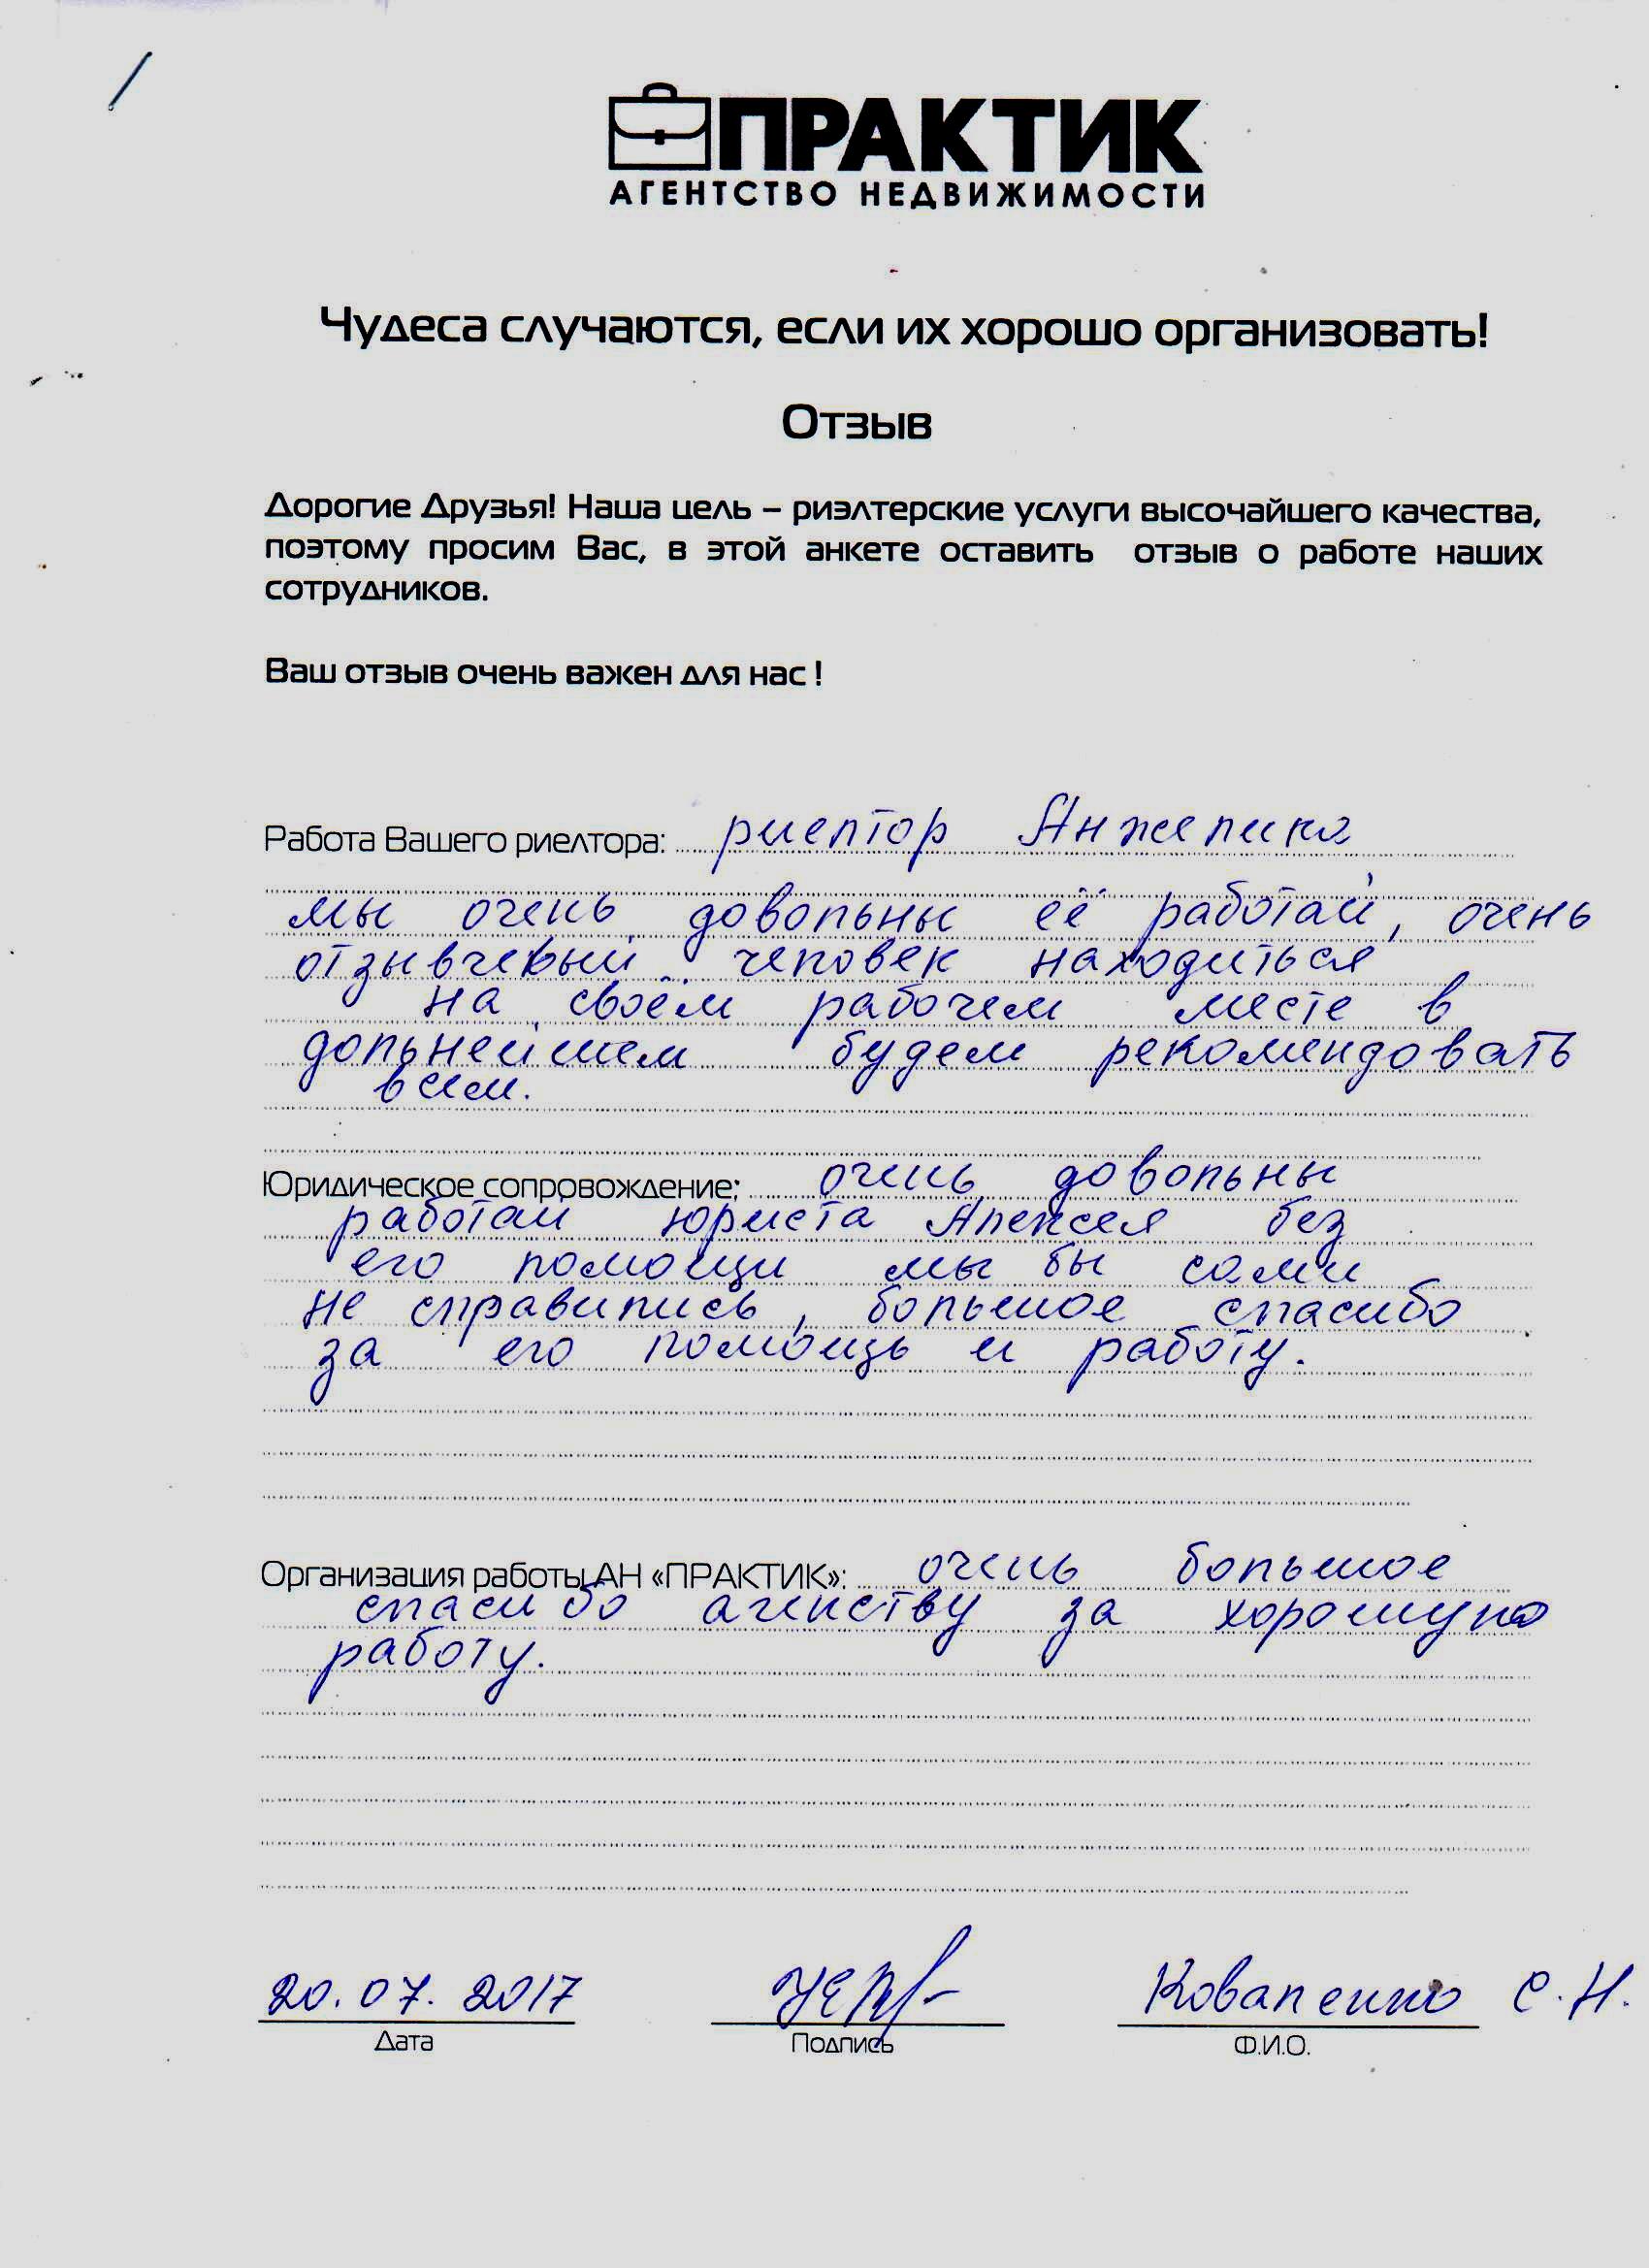 ПРАКТИК
АГЕНТСТВО НЕДВИЖИМОСТИ
Чудеса случаются, если их хорошо организовать!
Отзыв
Дорогие Друзья! Наша цель – риэлтерские услуги высочайшего качества,
поэтому просим Вас, в этой анкете оставить отзыв о работе наших
сотрудников.
Ваш отзыв очень важен для нас !
Работа Вашего риелтора: риелтор Анжелика
мы очень довольны её работай, очень
отзывчевый человек находиться
на своём рабочем месте в
дольнейшем будем рекомендовать
всем.
Юридическое сопровождение: очень довольны
работай юриста Алексея без
его помощи мы бы сами
не справились, большое спасибо
за его помощь и работу.
Организация работы АН «ПРАКТИК»: очень большое
спасибо агенству за хорошую
работу.
20.07.2017 Коваленко С.Н.
Дата Подпись Ф.И.О.